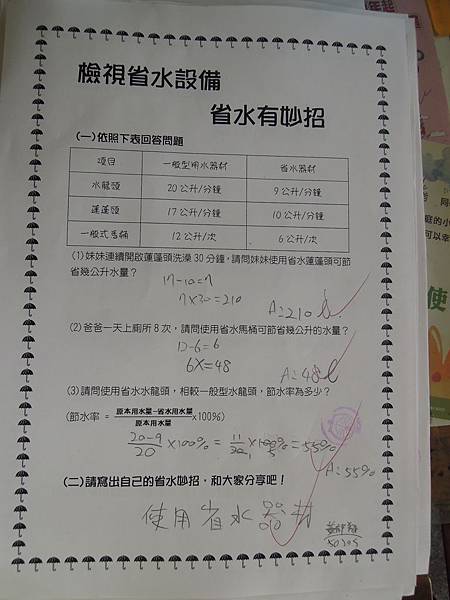 檢視省水設備
省水有妙招
(一)依照下表回答問題
項目 一般型用水器材 省水器材
水龍頭 20公升/分鐘 9公升/分鐘
蓮蓬頭 17公升/分鐘 10公升/分鐘
一般式馬桶 12公升/次 6公升/次
(1)妹妹連續開啟蓮蓬頭洗澡30分鐘,請問妹妹使用省水蓮蓬頭可節
省幾公升水量?
17-10=7
7×30=210
A:210ℓ
(2)爸爸一天上廁所8次,請問使用省水馬桶可節省幾公升的水量?
12-6=6
6×=48
A:48ℓ
(3)請問使用省水水龍頭,相較一般型水龍頭,節水率為多少?
(節水率 = 原本用水量-省水用水量/原本用水量 x100%)
20-9/20 ×100% = 11/20 ×100% = 55%
A:55%
(二)請寫出自己的省水妙招,和大家分享吧!
使用省水器材
50205